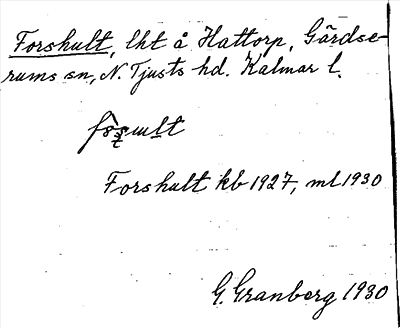 Forshult, lht å Hattorp, Gärdse-
rums sn, N. Tjusts hd. Kalmar l.
Forshult kb 1927, ml 1930
G. Granberg 1930